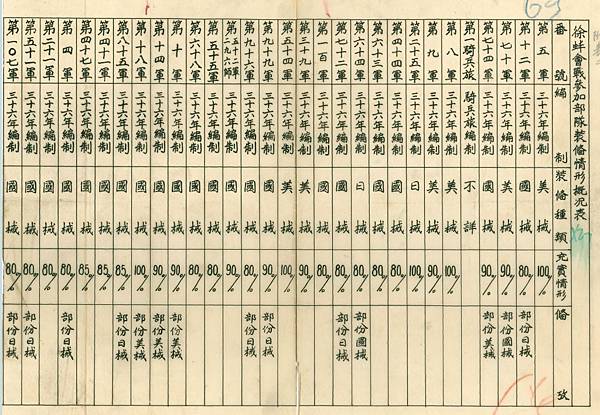 徐蚌會戰參加部隊裝備情形概況表
番號 編制 裝備種類 充實情形 備攷
第五軍 三十六年編制 美械 100%
第十二軍 三十六年編制 國械 80% 部份日械
第七十軍 三十六年編制 美械 90% 部份國械
第七十四軍 三十六年編制 國械 90% 部份美械
第一騎兵旅 騎兵旅編制 不詳
第八軍 三十六年編制 美械 100%
第九軍 三十六年編制 美械 90%
第二十五軍 三十六年編制 日械 100%
第六十四軍 三十六年編制 國械 80%
第六十三軍 三十六年編制 國械 80%
第四十四軍 三十六年編制 日械 80% 部份國械
第七十二軍 三十六年編制 國械 80% 部份日械
第一百軍 三十六年編制 國械 80%
第三十九軍 三十六年編制 美械 90%
第五十四軍 三十六年編制 美械 100%
第九十九軍 三十六年編制 國械 90% 部份日械
第九十六軍 三十六年編制 國械 80% 部份日械
九六師 三十六年編制 國械 90%
第五十五軍 三十六年編制 國械 80%
第六十八軍 三十六年編制 國械 80%
第十軍 三十六年編制 美械 90% 部份美械
第十四軍 三十六年編制 國械 90% 部份美械
第十八軍 三十六年編制 美械 100% 部份美械
第八十五軍 三十六年編制 國械 85% 部份日械
第四十一軍 三十六年編制 國械 85%
第四十七軍 三十六年編制 國械 85%
第四軍 三十六年編制 國械 80% 部份日械
第二十一軍 三十六年編制 國械 80%
第五十一軍 三十六年編制 國械 80% 部份日械
第一〇七軍 三十六年編制 國械 80%